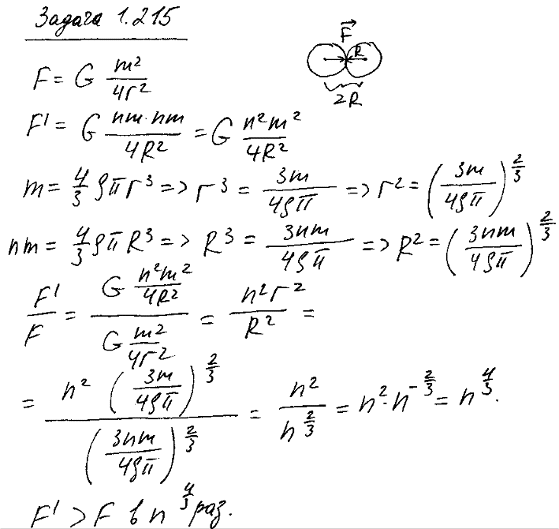 Задача 1.215
F⃗
R
2R
F = G m²/4r²
F' = G nm·nm/4R² = G n²m²/4R²
m = 4/3 ρπr³ => r³ = 3m/4ρπ => r² = (3m/4ρπ)^(2/3)
nm = 4/3 ρπR³ => R³ = 3nm/4ρπ => R² = (3nm/4ρπ)^(2/3)
F'/F = (G n²m²/4R²)/(G m²/4r²) = n²r²/R² =
= (n² (3m/4ρπ)^(2/3))/((3nm/4ρπ)^(2/3)) = n²/n^(2/3) = n²·n^(-2/3) = n^(4/3).
F' > F в n^(4/3) раз.